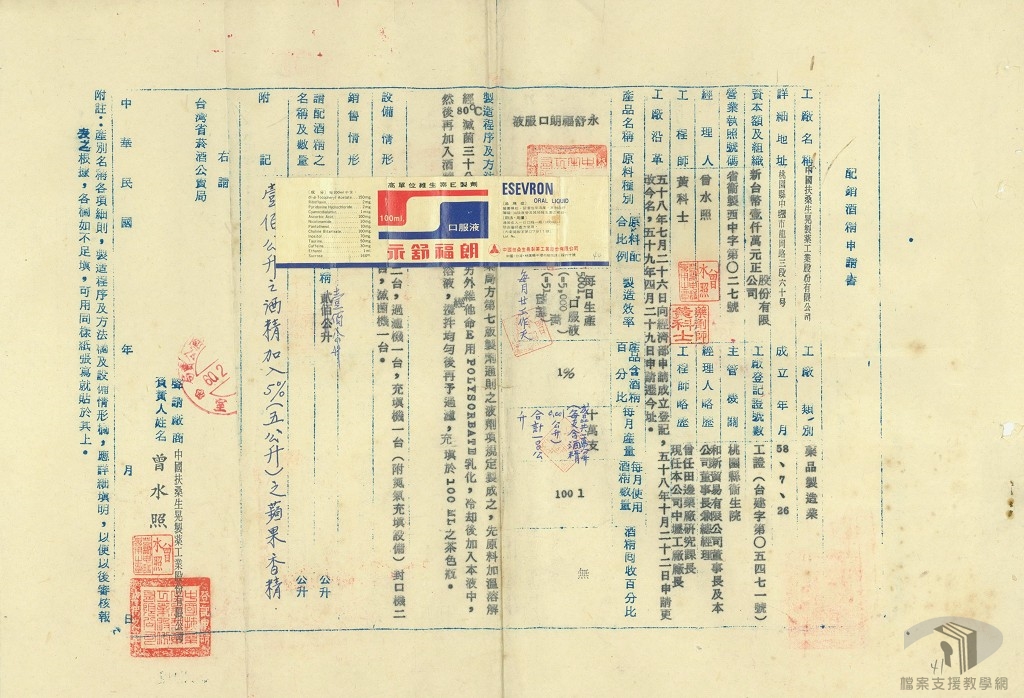 配銷酒精申請書
工廠名稱 中國扶桑生晃製藥工業股份有限公司
工廠類別 藥品製造業
詳細地址 桃園縣中壢市龍岡路三段六十號
成立年月 58、7、26
資本額及組織 新台幣壹仟萬元正 股份有限公司
工廠登記證號數 工證(台建字第〇五四七一號)
營業執照號碼 省衛製西中字第〇二七號
主管機關 桃園縣衛生院
經理人 曾水照
經理人略歷 和新貿易有限公司董事長及本公司董事長兼總經理
工程師 黃科士
工程師略歷 曾任田邊藥廠研究課長 現任本公司中壢工廠廠長
工廠沿革 五十八年七月二十六日向經濟部申請成立登記,五十八年十月二十二日申請更改今名,五十九年四月二十九日申請遷今址。
產品名稱
原料種別
原料配合比例
製造效率
產品含酒精百分比
每月產量
每月使用酒精數量
酒精回收百分比
永舒福朗口服液
每日生產
500l 口服液
(=5,000 瓶)
每月廿工作天
1%
十萬支
合計一百公升
100 l
無
製造程序及方法
藥局方第七版製劑通則之液劑項規定製成之,先原料加溫溶解
經80°C滅菌三十分
另外維他命E用POLYSORBATE乳化,冷却後加入本液中,
然後再加入酒精
溶液,攪拌均勻後再予過濾,充填於100 ML之茶色瓶。
設備情形
二台,過濾機一台,充填機一台(附氮氣充填設備)封口機二
台,滅菌機一台。
銷售情形
請配酒精之名稱及數量
酒精 貳佰公升
壹百公升
公升
公升
附記
壹佰公升之酒精加入5%(五公升)之蘋果香精.
高單位維生素E製劑
100ml.
口服液
永舒福朗
ESEVRON
ORAL LIQUID
中國扶桑生晃製藥工業股份有限公司
右請
台灣省菸酒公賣局
聲請廠商 中國扶桑生晃製藥工業股份有限公司
負責人姓名 曾水照
中華民國 年 月 日
附註:產別名稱各項細則,製造程序及方法欄及設備情形欄,應詳細填明,以便以後審核報
表之根據,各欄如不足填,可用同樣紙張寫就貼於其上。
60.2
41
檔案支援教學網